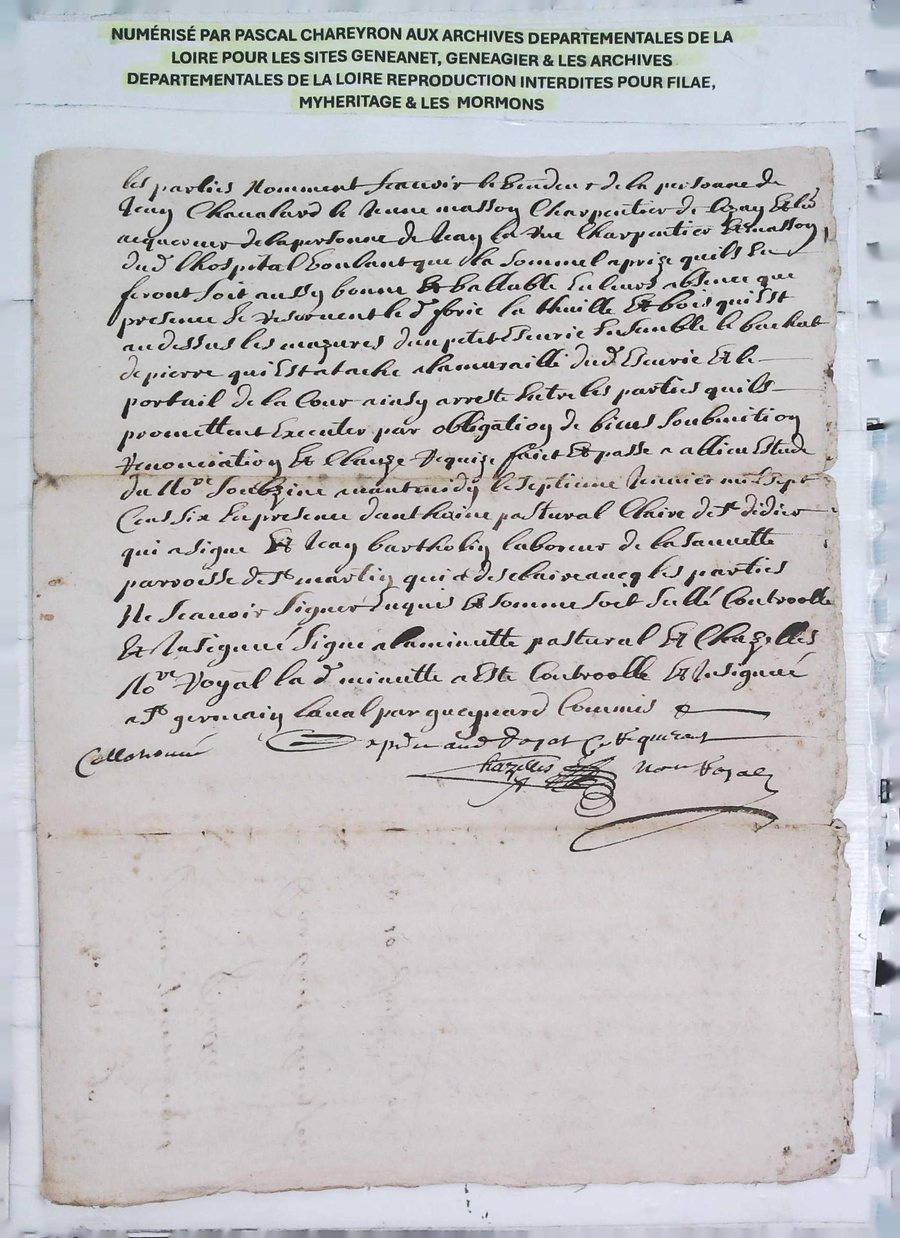 NUMÉRISÉ PAR PASCAL CHAREYRON AUX ARCHIVES DEPARTEMENTALES DE LA
LOIRE POUR LES SITES GENEANET, GENEAGIER & LES ARCHIVES
DEPARTEMENTALES DE LA LOIRE REPRODUCTION INTERDITES POUR FILAE,
MYHERITAGE & LES MORMONS
les parties nomment scavoir le vendeur de la personne de
Jean Chavalard le Jeune masson Charpentier de
acquereur de la personne de Jean la rue Charpentier & masson
dud. lhospital voulant que la somme a prize quils en
feront soit aussy bonne & vallable en leurs absence que
presence se reservent le d. la thuille & bois qui est
au dessus les mazures dun petit escurie ensemble le bachat
de pierre qui est atache a la muraille dud. Escurie & le
portail de la Cour ainsy arreste entre les parties quils
promettent executer par obligation de biens soubmition
renonciation & clauze requize faict & passe a allieu estude
du No.re soubzine avant midy le septieme Janvier mil sept
Cens six en presence danthoine pastural Claire de St. didier
qui a signe & Jean bartholin laboreur de la
parroisse de St. martin qui a desclaire avecq les parties
ne scavoir signer enquis & somme soit sellé Controolle
& Insignué signe a la minutte pastural & Chazelles
No.re Royal la d. minutte a este Controolle & Insignué
a St. germain laval par gueynard Commis
Collationné
expdie aud. ce requerant
Chazelles No.re Royal